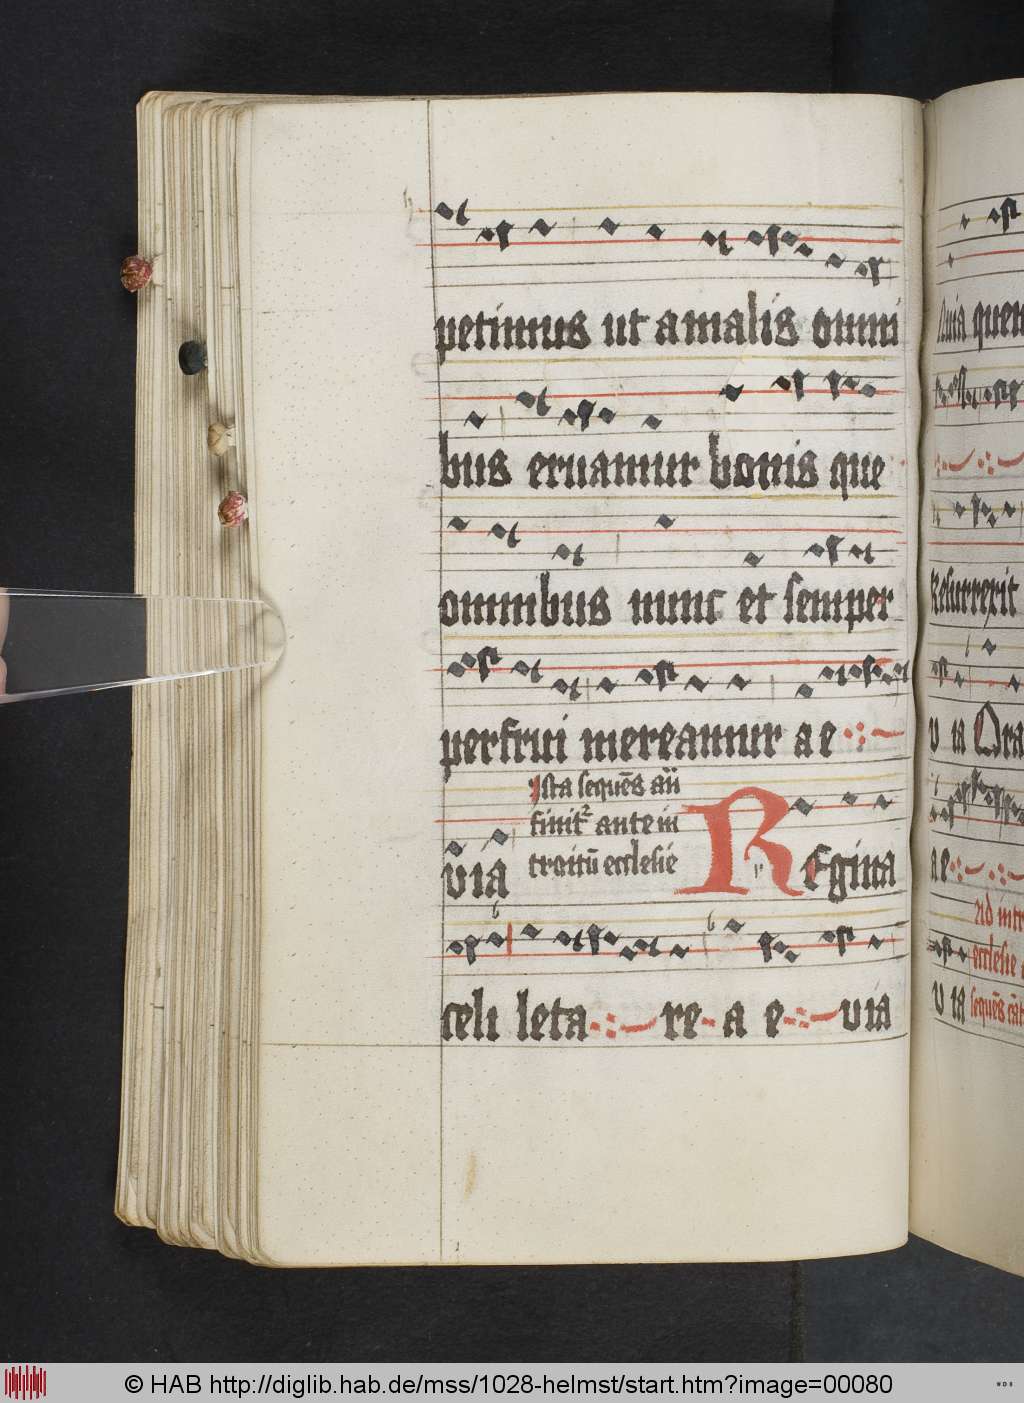 petimus ut a malis omni
bus eruamur bonis que
omnibus nunc et semper
perfrui mereamur a e
Ista sequēs añ
finitᷣ ante in
troitū ecclesie
via
Regina
celi leta re a e via
uia quem
Resurrexit
v ia Ora
a e
Ad intr
ecclesie
v ia sequēs
© HAB http://diglib.hab.de/mss/1028-helmst/start.htm?image=00080